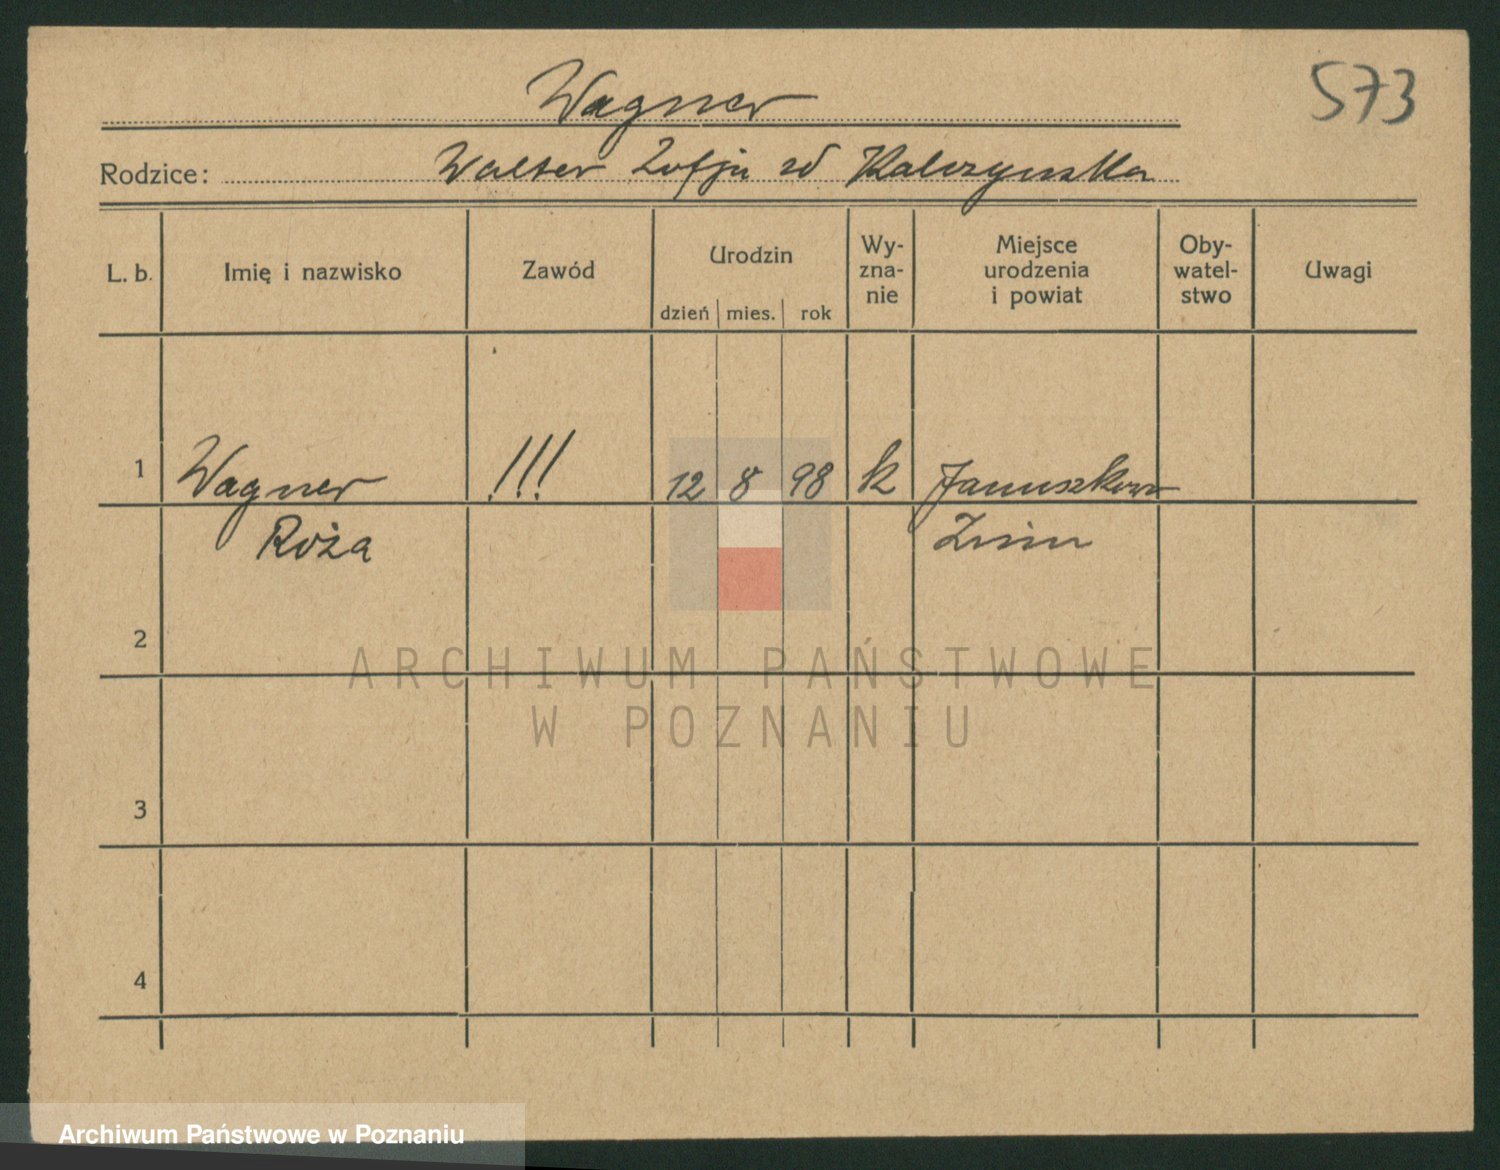 573
Wagner
Rodzice: Walter Zofja zd
L. b.
Imię i nazwisko
Zawód
Urodzin
dzień mies. rok
Wy-
zna-
nie
Miejsce
urodzenia
i powiat
Oby-
watel-
stwo
Uwagi
1 Wagner !!! 12 8 98 k Januszkowo
Róża Żnin
2
3
4
ARCHIWUM PAŃSTWOWE
W POZNANIU
Archiwum Państwowe w Poznaniu